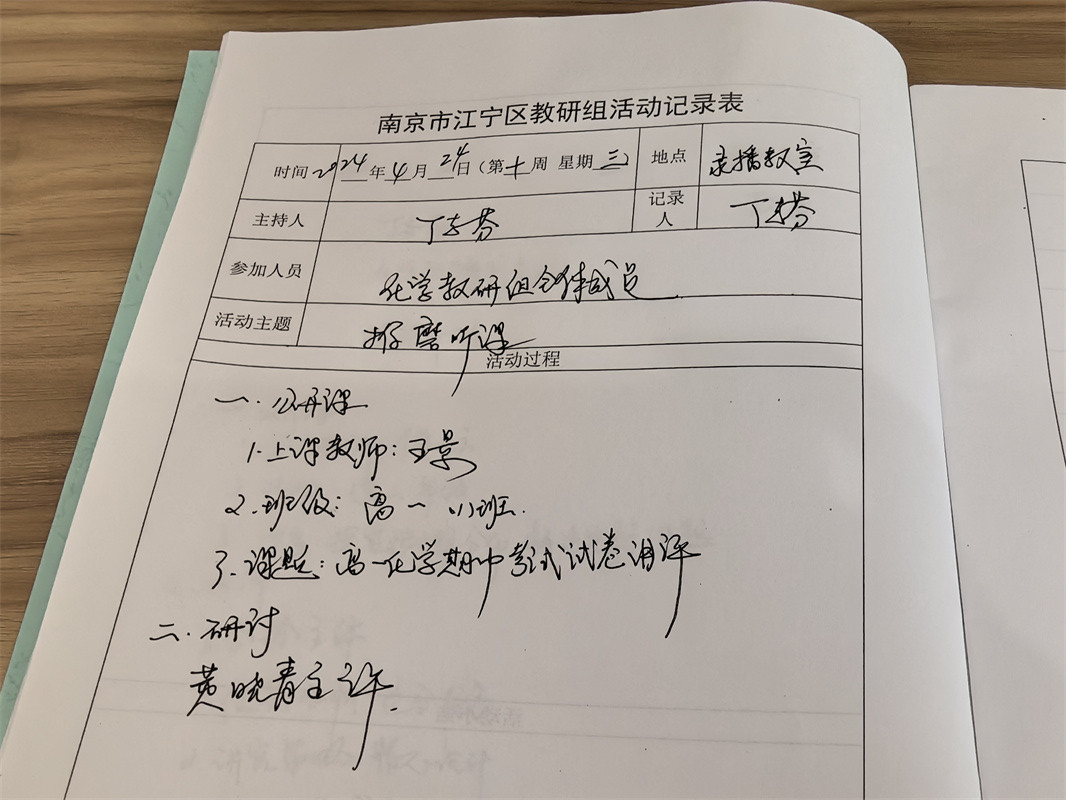 南京市江宁区教研组活动记录表
时间 2024年4月24日(第十周 星期三 地点 录播教室
主持人 丁志芬 记录人 丁志芬
参加人员 化学教研组全体成员
活动主题 推磨听课
活动过程
一.公开课
1.上课教师:王景
2.班级:高一(1)班.
3.课题:高一化学期中考试试卷讲评
二.研讨
黄晓青主评.